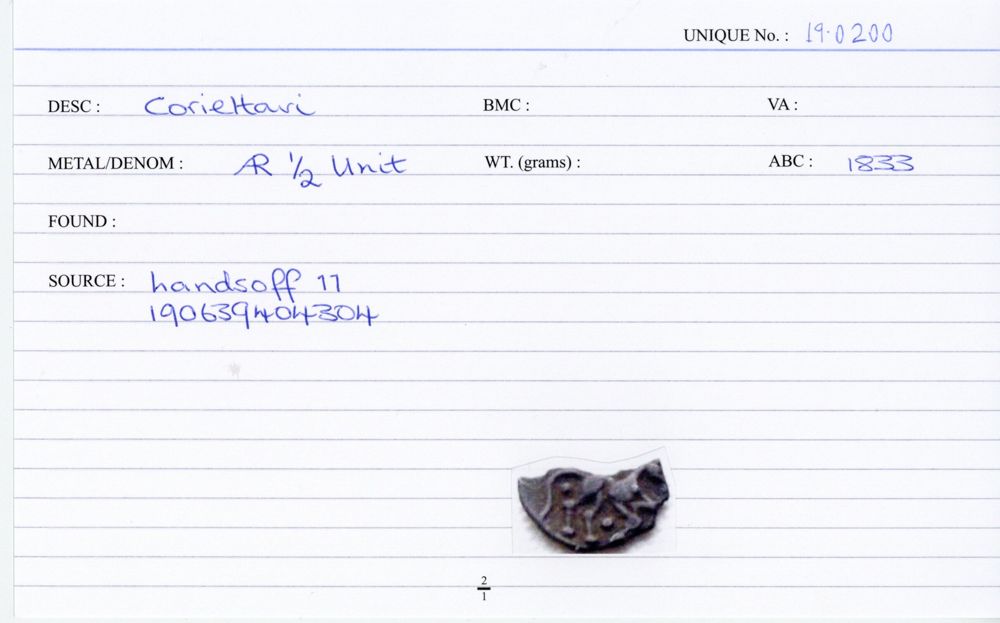 UNIQUE No. : 19.0200
DESC : Corieltavi BMC : VA :
METAL/DENOM : AR 1/2 Unit WT. (grams) : ABC : 1833
FOUND :
SOURCE : handsoff 11
190639404304
2
1